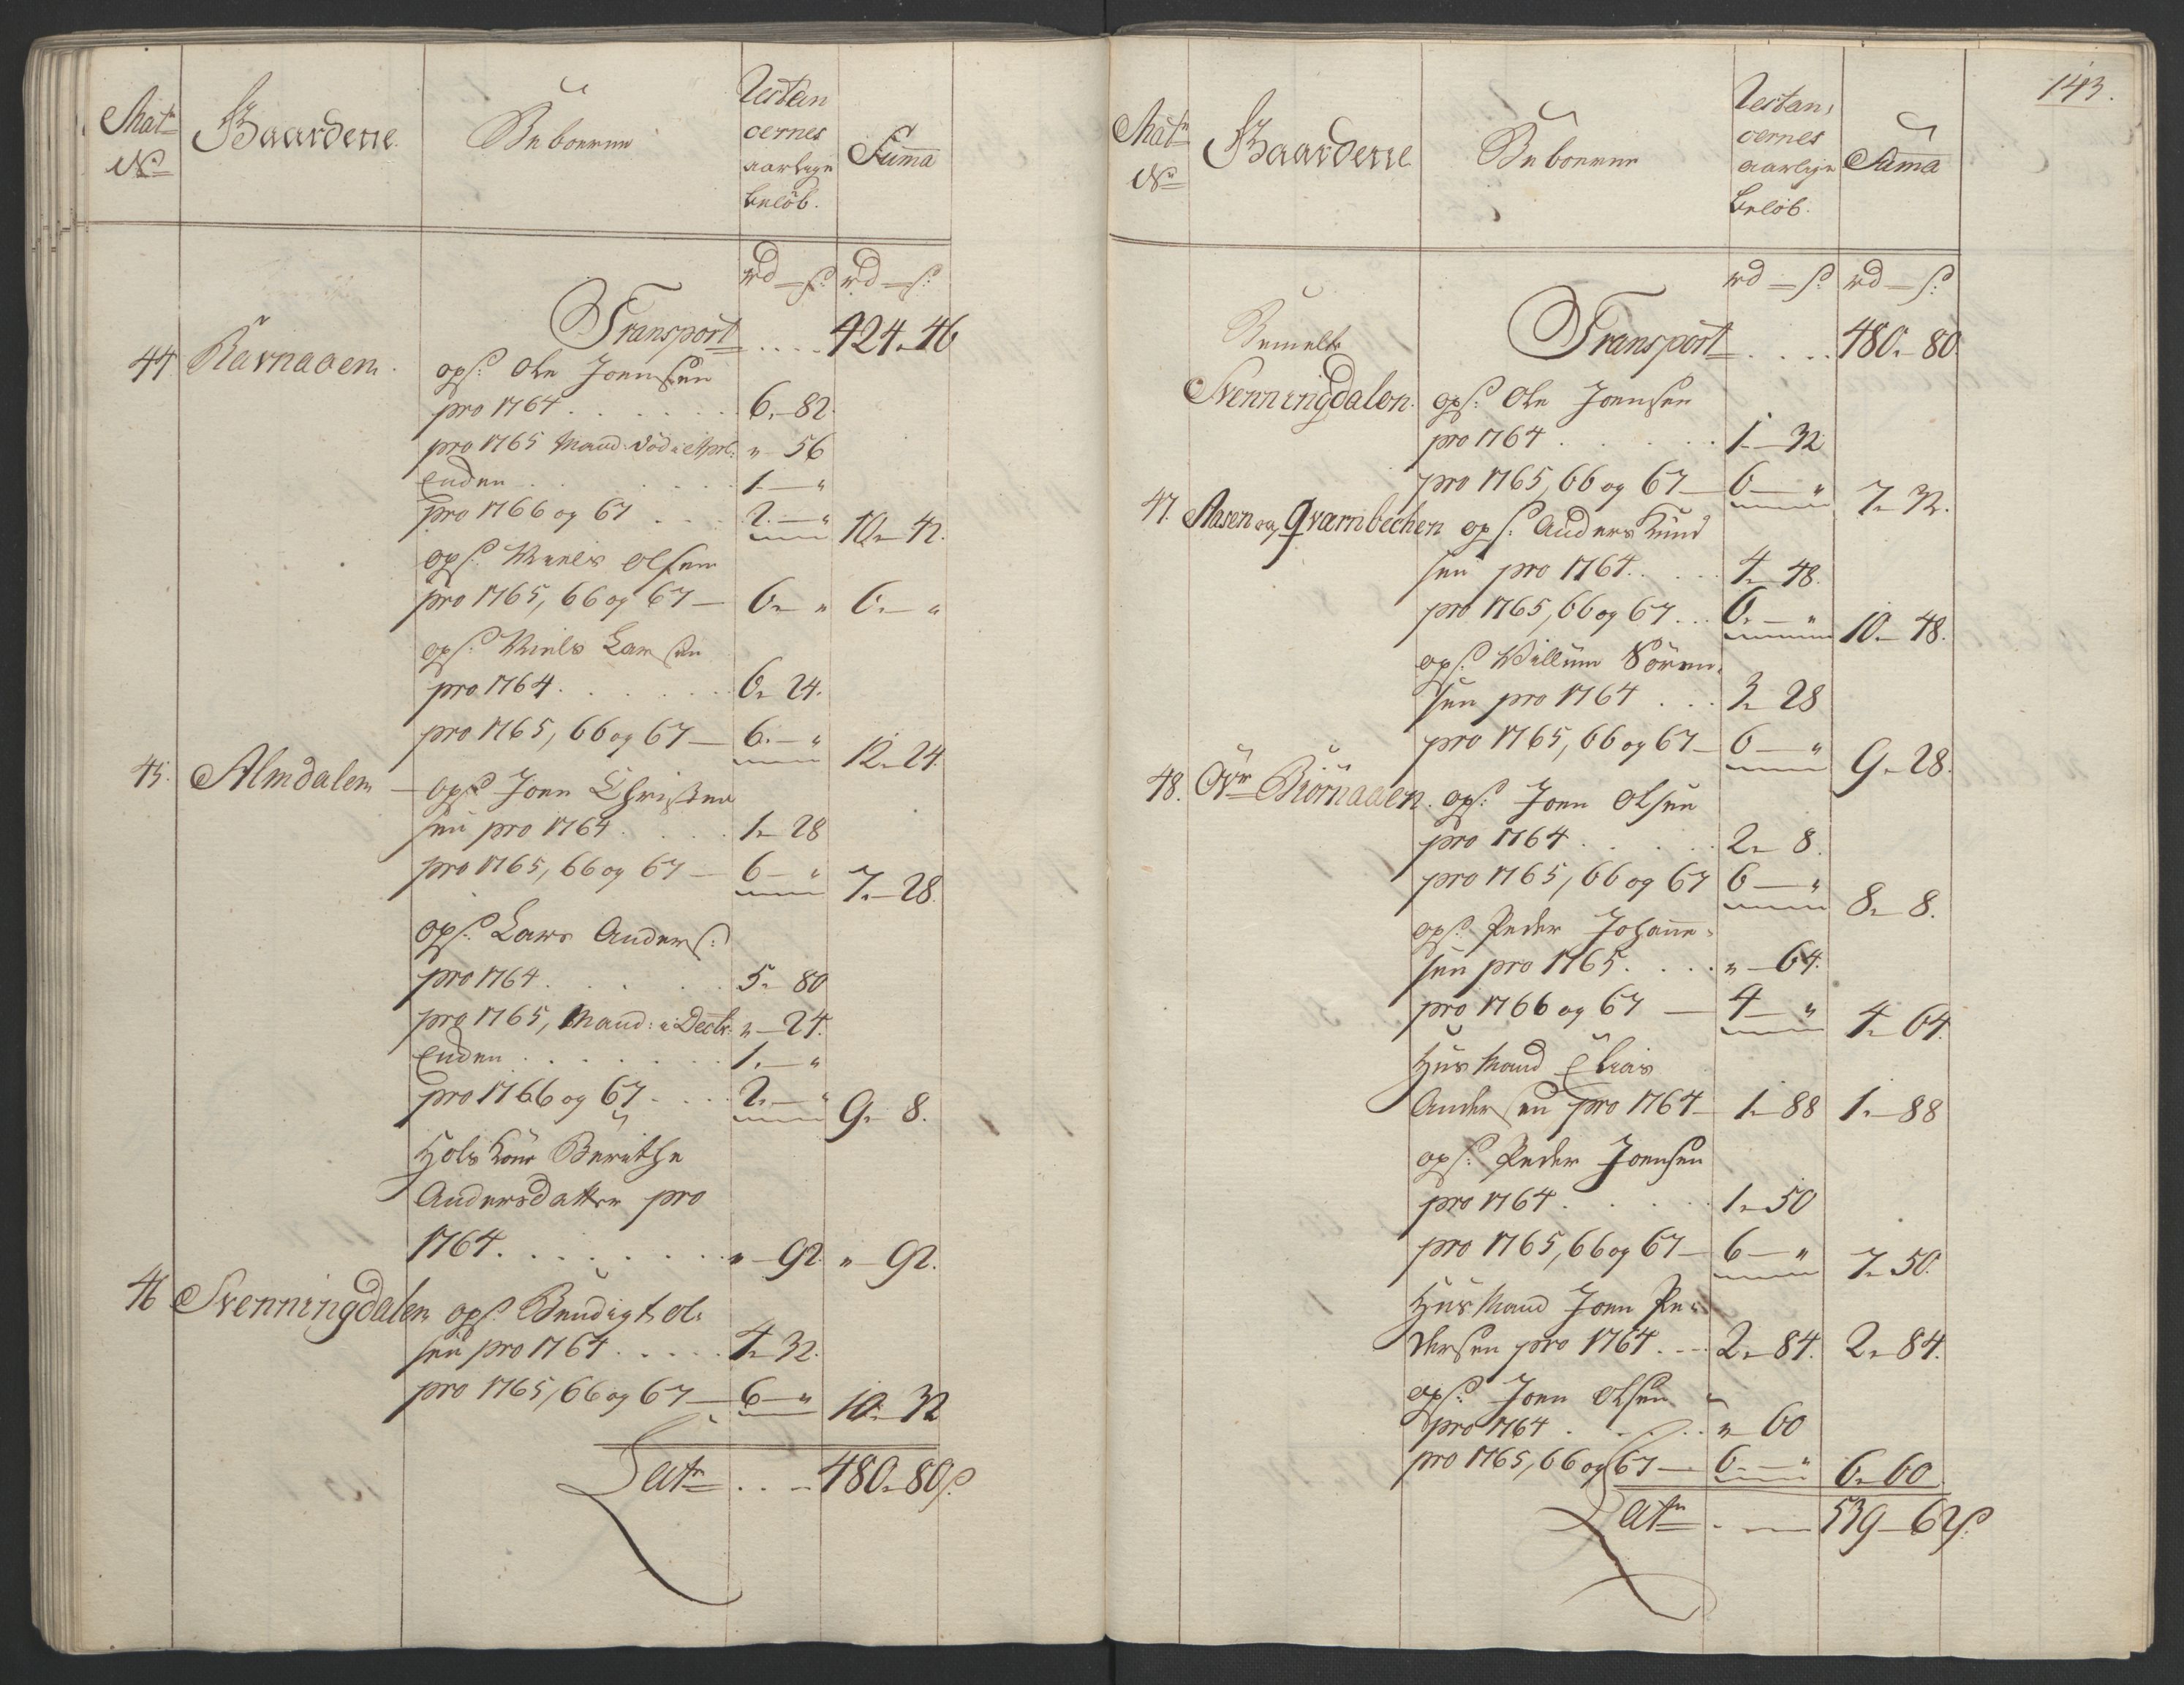 Mat:
No
Gaardene
Beboerne
Restan
cernes
aarlige
beløb.
Suma
rd — s: rd — s:
Transport .... 424. 46
44 Ravnaaen. ops: Ole Joensen
pro 1764 ....... 6. 82.
pro 1765 Mand: död i Apri: " 56
Enken ....... 1. — "
pro 1766 og 67 .... 2. — " 10. 42.
ops: Niels Olsen
pro 1765, 66 og 67 — 6. " 6. — "
ops: Niels Larsen
pro 1764 ....... 6. 24.
pro 1765, 66 og 67 — 6. — " 12. 24.
45. Almdalen — ops: Joen Christen
sen pro 1764 .... 1. 28
pro 1765, 66 og 67 — 6 — " 7. — 28.
ops: Lars Anders:
pro 1764 ...... 5. 80
pro 1765, Mand: i Decbr: " — 24.
Enken ....... 1. — "
pro 1766 og 67 .... 2. — " 9. 8.
Huskone Berithe
Andersdatter pro
1764 ........ " — 92. " — 92.
46 Svenningdalen ops: Bendigt Ol-
sen pro 1764 ..... 4. 32.
pro 1765, 66 og 67 — 6 — " 10. 32
Latr .. — 480. 80 s:
143.
Mat:
No
Gaardene
Beboerne
Restan,
cernes
aarlige
beløb.
Suma
rd — s: rd — s:
Bemelte Transport .... 480. — 80.
Svenningdalen. ops: Ole Joensen
pro 1764 ...... 1 — 32
pro 1765, 66 og 67 — 6 — " 7. 32.
47. Aasen og Qvarnbechen ops: Anders Knud
sen pro 1764 ..... 4. 48.
pro 1765, 66 og 67 ... 6. — " 10. — 48.
ops: Willum Sören,
sen pro 1764 ... 3. 28
pro 1765, 66 og 67 — 6 — " 9. 28.
48. Övr Biörnaaen. ops: Joen Olsen
pro 1764 ...... 2. 8.
pro 1765, 66 og 67 6 — " 8. 8.
ops: Peder Johanne-
sen pro 1765 .... " — 64.
pro 1766 og 67 — 4 — " 4. 64.
Huusmand Elias
Andersen pro 1764 — 1. 88 1. — 88
ops: Peder Joensen
pro 1764 ...... 1. 50
pro 1765, 66 og 67 — 6 — " 7. 50.
Huusmand Joen Pe-
dersen pro 1764 ... 2. — 84. 2. 84.
ops: Joen Olsen
pro 1764 ...... " 60
pro 1765, 66 og 67 — 6. — " 6. 60
Latr . — 539 — 62 s: